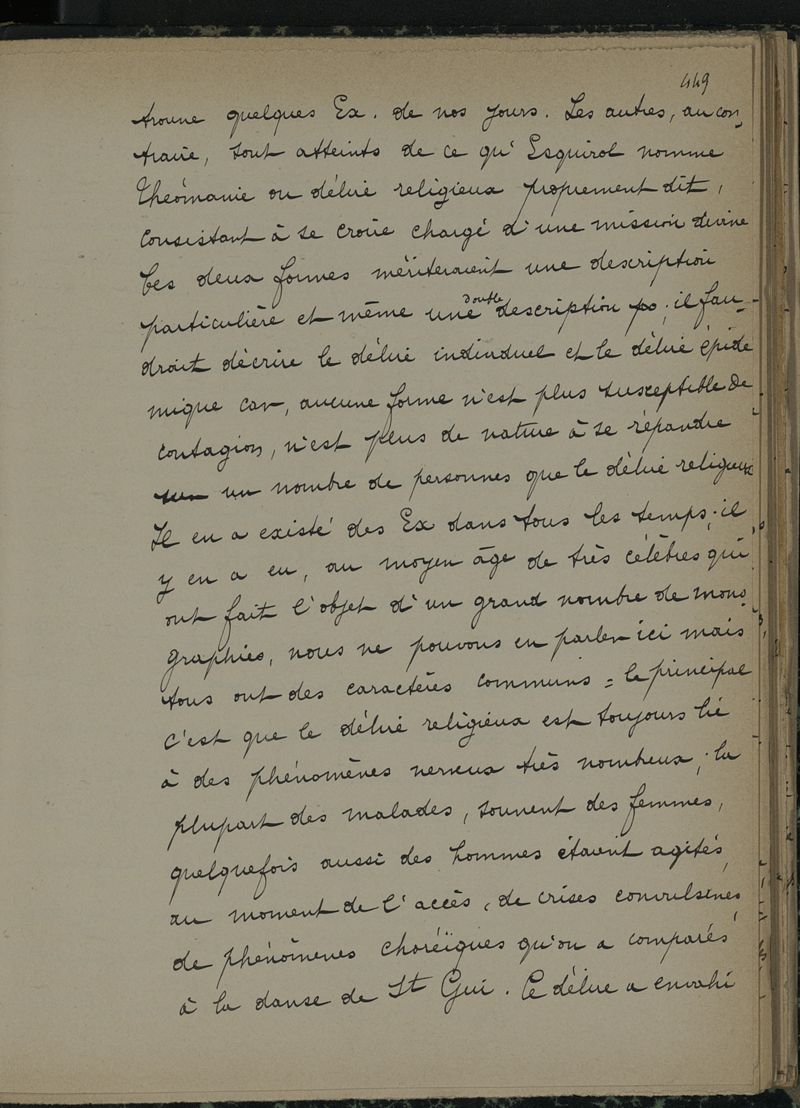 449
trouve quelques Ex. de nos jours. Les autres, au con
traire, sont atteints de ce qu'Esquirol nomme
Théomanie ou délire religieux proprement dit,
consistant à se croire chargé d'une mission divine
Ces deux formes mériteraient une description
particulière et même une double description po ; il fau-
drait décrire le délire individuel et le délire épidé
mique car, aucune forme n'est plus susceptible de
contagion, n'est plus de nature à se répandre
sur un nombre de personnes que le délire religieux
Il en a existé des Ex dans tous les temps ; il
y en a eu, au moyen âge de très célèbres qui
ont fait l'objet d'un grand nombre de mono
graphies, nous ne pouvons en parler ici mais
tous ont des caractères communs = le principal
c'est que le délire religieux est toujours lié
à des phénomènes nerveux très nombreux ; la
plupart des malades, souvent des femmes,
quelquefois aussi des hommes étaient agités,
au moment de l'accès, de crises convulsives,
de phénomènes choréïques qu'on a comparés
à la danse de St Gui. Ce délire a envahi